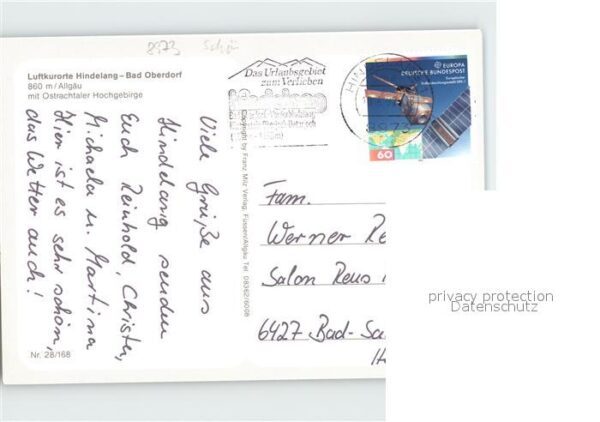 8973 Schön
Luftkurorte Hindelang – Bad Oberdorf
860 m / Allgäu
mit Ostrachtaler Hochgebirge
Viele Grüße aus
Hindelang senden
Euch Reinhold, Christa,
Michaela u. Martina
Hier ist es sehr schön,
das Wetter auch!
Nr. 28/168
Copyright by Franz Milz Verlag, Füssen/Allgäu Tel. 08362/6098
Das Urlaubsgebiet
zum Verlieben
HIN
8973
EUROPA
DEUTSCHE BUNDESPOST
60
Fam.
Werner Re
Salon Reus
6427 Bad-Sa
privacy protection
Datenschutz